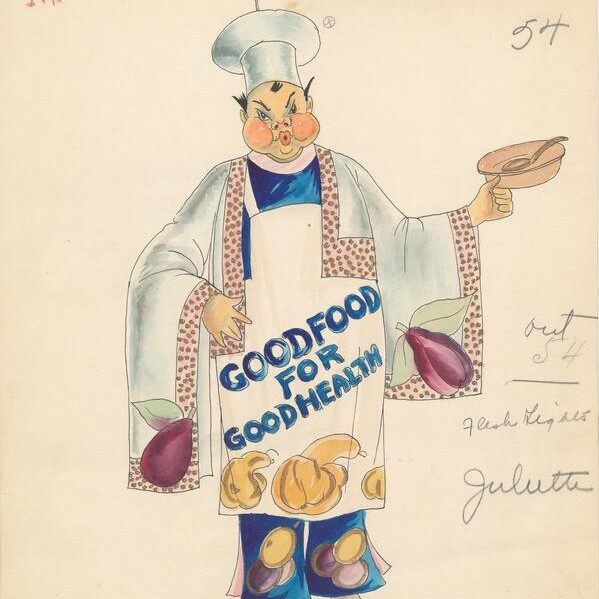 54
GOOD FOOD
FOR
GOOD HEALTH
out
54
Flesh
Juliette